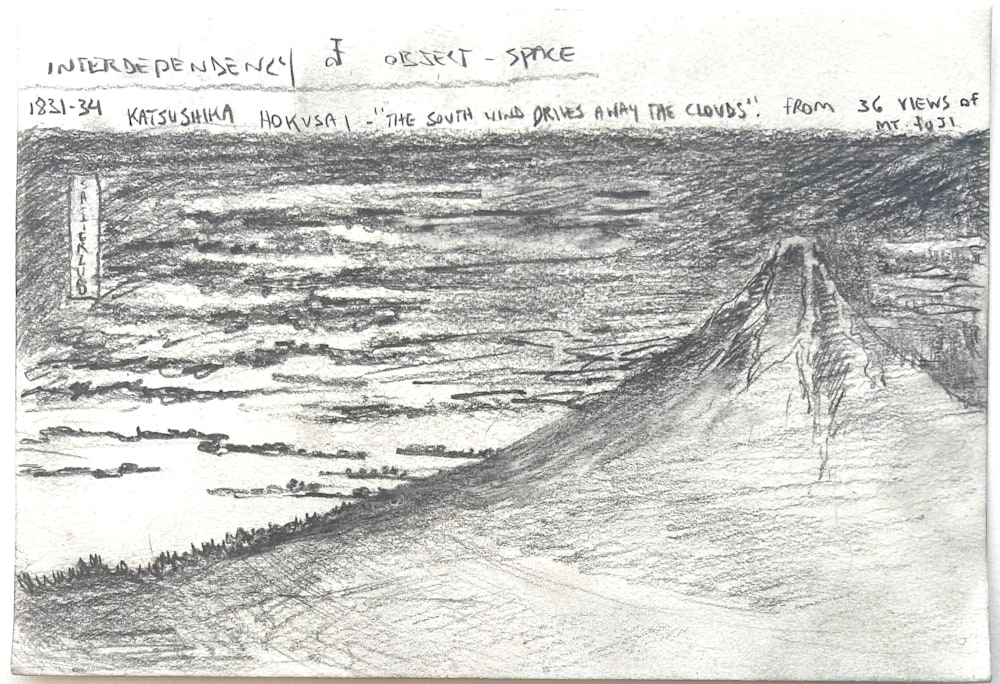 INTERDEPENDENCY OF OBJECT - SPACE
1831-34 KATSUSHIKA HOKUSAI - "THE SOUTH WIND DRIVES AWAY THE CLOUDS". from 36 VIEWS of
MT. FUJI